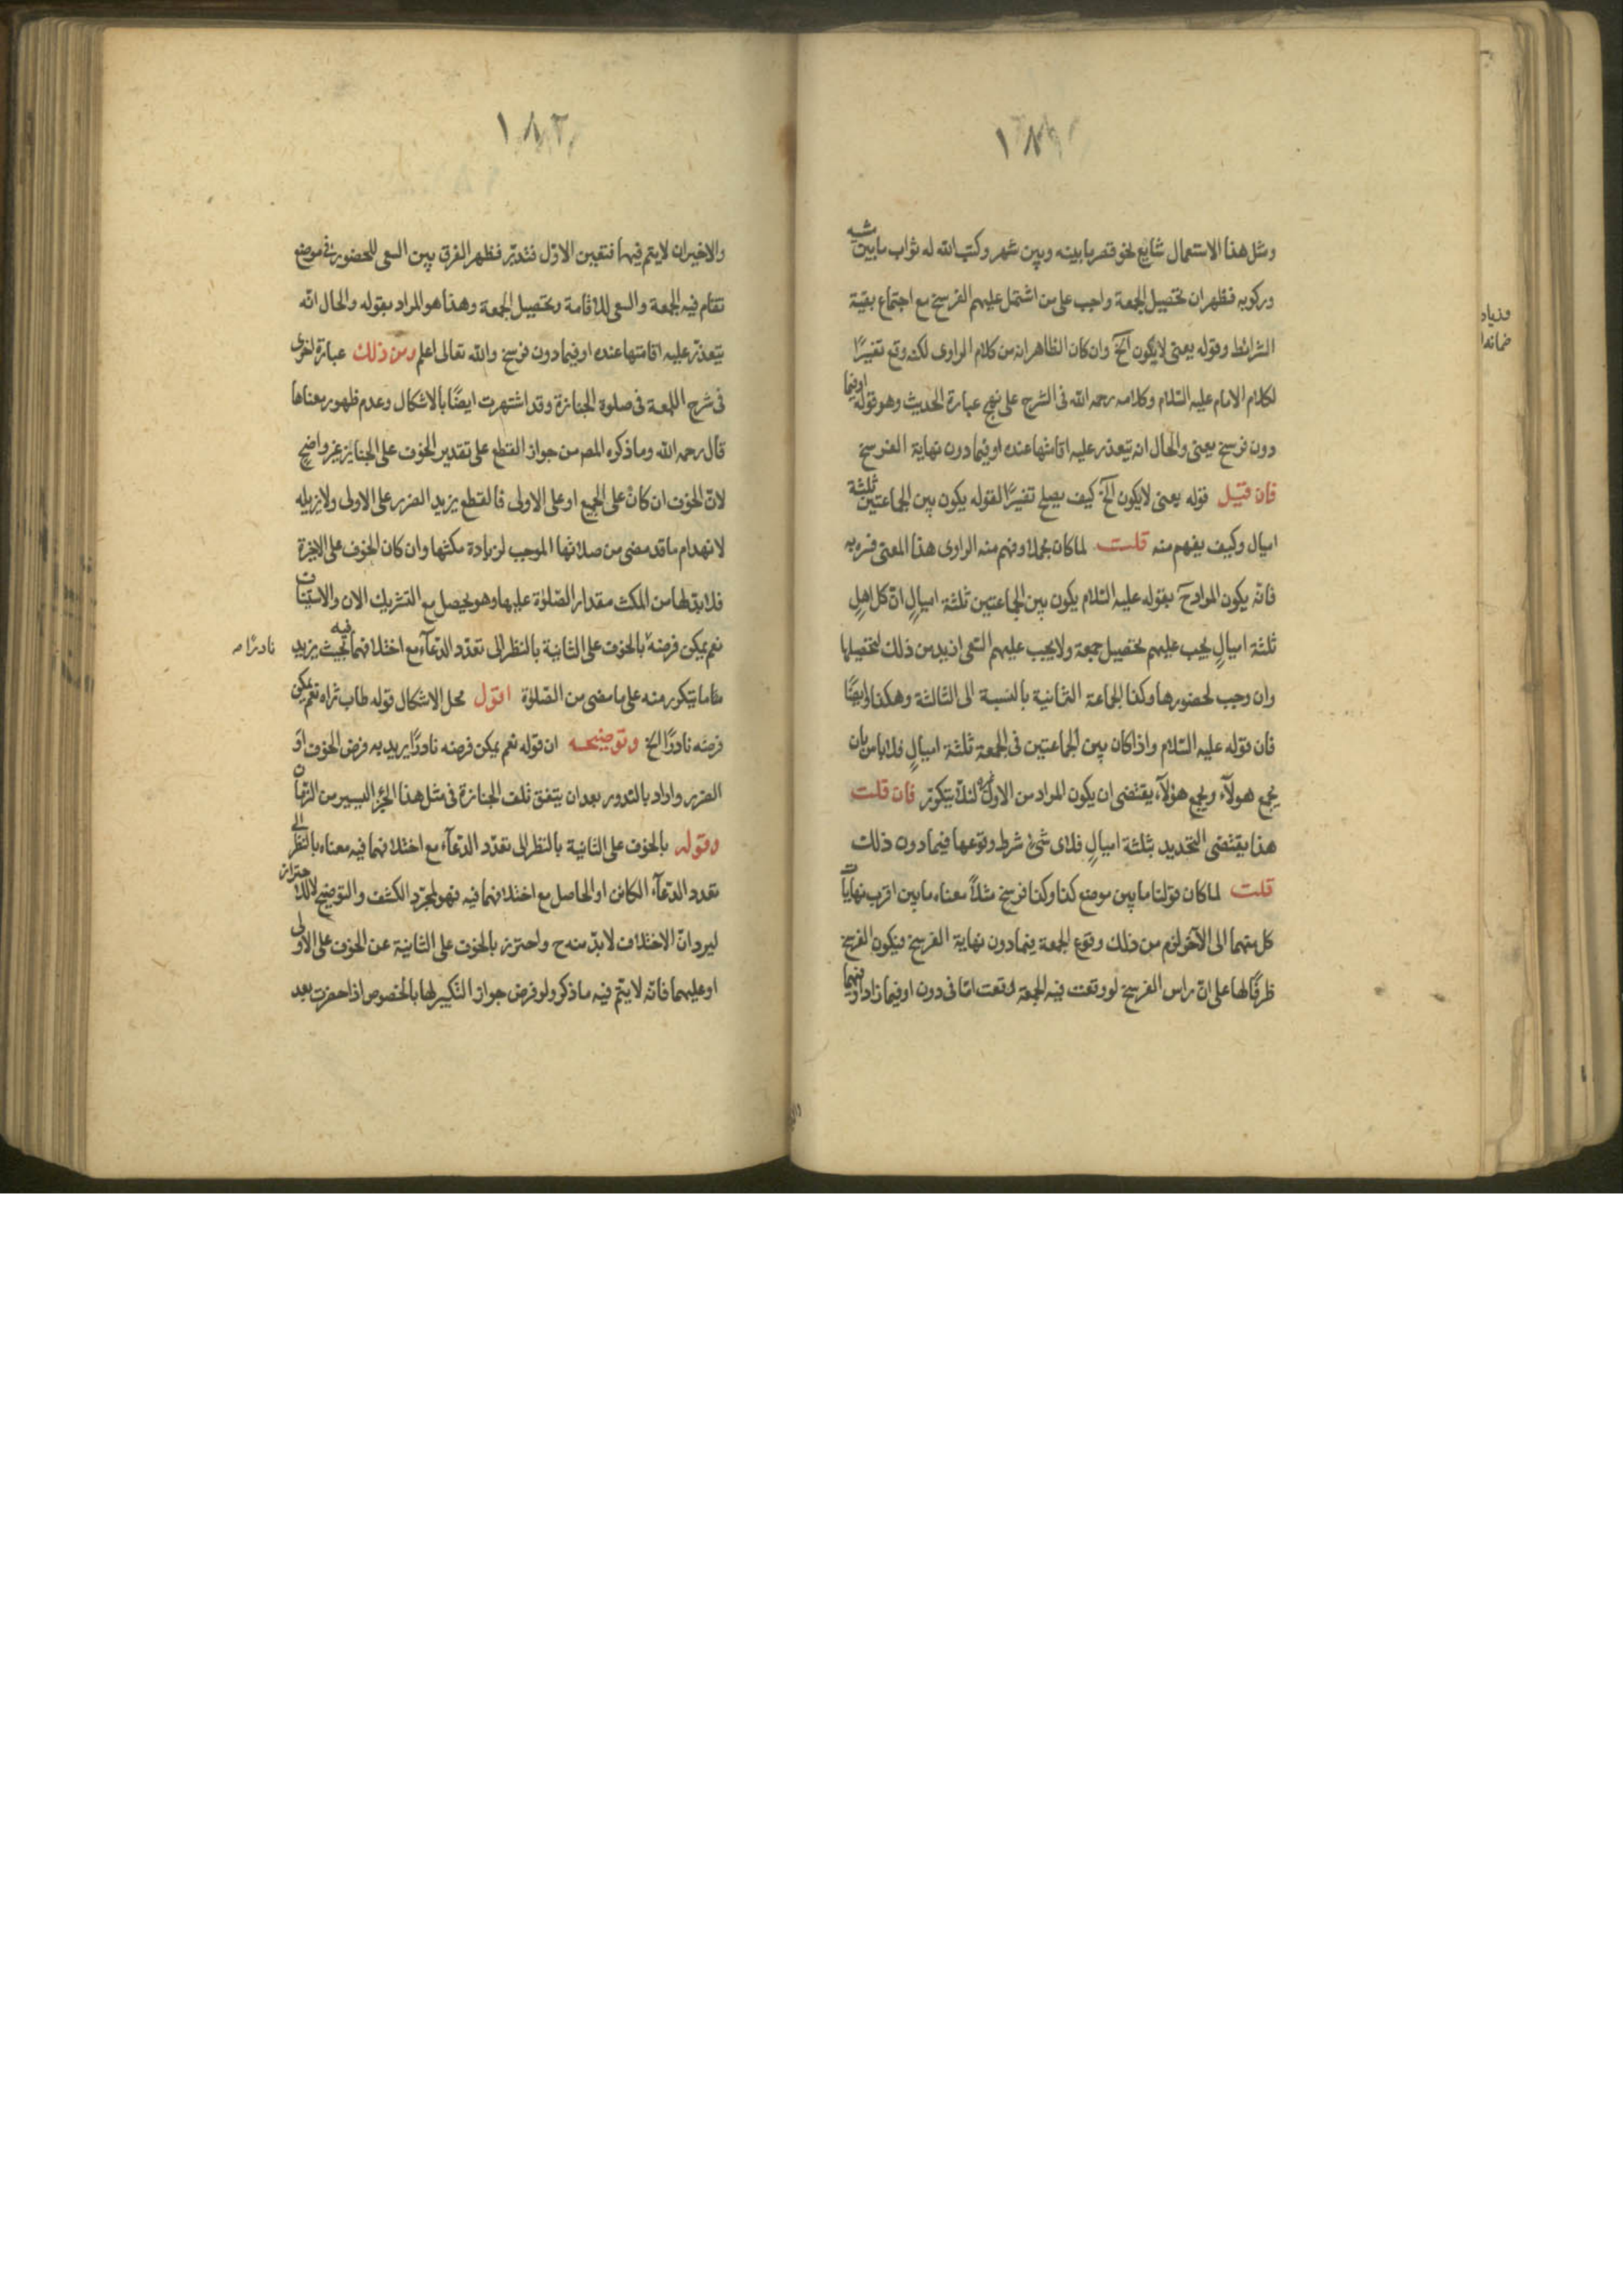 ١٨١
ومثل هذا الاستعمال شايع نحو قصر ما بينه وبين شهر وكتب الله له ثواب ما بين مشيه
وركوبه فظهر ان تحصيل الجمعة واجب على من اشتمل عليهم الفرسخ مع اجتماع بقية
الشرائط وقوله يعنى لا يكون الخ وان كان الظاهر انه من كلام الراوى لكنه وقع تفسيرًا
لكلام الامام عليه السّلام وكلامه رحمه الله فى الشرح على نهج عبارة الحديث وهو قوله او فيما
دون فرسخ يعنى والحال انه يتعذر عليه اقامتها عنده او فيما دون نهاية الفرسخ
فان قيل قوله يعنى لا يكون الخ كيف يصلح تفسيرًا لقوله يكون بين الجماعتين ثلثة
اميال وكيف يفهم منه قلت لما كان مجملا وفهم منه الراوى هذا المعنى فسره به
فانّه يكون المراد ح بقوله عليه السّلام يكون بين الجماعتين ثلثة اميالٍ انّ كل اهلِ
ثلثة اميالٍ يجب عليهم تحصيل جمعة ولا يجب عليهم السّعى ازيد من ذلك لتحصيلها
وان وجب لحضورها وكذا الجماعة الثانية بالنسبة الى الثالثة وهكذا وايضًا
فان قوله عليه السّلام واذا كان بين الجماعتين فى الجمعة ثلثة اميالٍ فلا باس بان
يجمع هولآء ويجمع هؤلآء يقتضى ان يكون المراد من الاول غيره لئلّا يتكرّر فان قلت
هذا يقتضى التحديد بثلثة اميالٍ فلاى شئ شرط وقوعها فيما دون ذلك
قلت لما كان قولنا ما بين موضع كذا وكذا فرسخ مثلاً معناه ما بين اقرب نهايات
كل منهما الى الآخر لزم من ذلك وقوع الجمعة فيما دون نهاية الفرسخ فيكون الفرسخ
ظرفًا لها على انّ راس الفرسخ لو وقعت فيه الجمعة لوقعت امّا فى دون او فيما زاد او فيهما
١٨٢
والاخيران لا يتم فيهما فتعين الاوّل فتدبّر فظهر الفرق بين السعى للحضور فى موضع
تقام فيه الجمعة والسعى للاقامة وتحصيل الجمعة وهذا هو المراد بقوله والحال انّه
يتعذّر عليه اقامتها عنده او فيما دون فرسخ والله تعالى اعلم ومن ذلك عبارة اخرى
فى شرح اللمعة فى صلوة الجنازة وقد اشتهرت ايضًا بالاشكال وعدم ظهور معناها
قال رحمه الله وما ذكره المص من جواز القطع على تقدير الخوف على الجنايز غير واضحٍ
لانّ الخوف ان كان على الجميع او على الاولى فالقطع يزيد الضرر على الاولى ولا يزيله
لانهدام ما قد مضى من صلاتها الموجب لزيادة مكثها وان كان الخوف على الاخيرة
فلا بدّ لها من المكث مقدار الصّلوة عليها وهو يحصل مع التشريك الان والاستيناف
نعم يمكن فرضه بالخوف على الثانية بالنظر الى تعدّد الدّعآء مع اختلافهما فيه بحيث يزيد
نادرًا
ما يتكرر منه على ما مضى من الصّلوة اقول محل الاشكال قوله طاب ثراه نعم يمكن
فرضه نادرًا الخ وتوضيحه ان قوله نعم يمكن فرضه نادرًا يريد به فرض الخوف او
الضرر واراد بالندور بعد ان يتفق تلف الجنازة فى مثل هذا الجزء اليسير من الزمان
وقوله بالخوف على الثانية بالنظر الى تعدّد الدّعآء مع اختلافهما فيه معناه بالنظر الى
تعدد الدّعآء الكائن او الحاصل مع اختلافهما فيه فهو لمجرّد الكشف والتوضيح لا للاحتراز
ليرد انّ الاختلاف لا بدّ منه ح واحترز بالخوف على الثانية عن الخوف على الاولى
او عليهما فانّه لا يتم فيه ما ذكر ولو فرض جواز التكبير لها بالخصوص اذا حضرت بعد